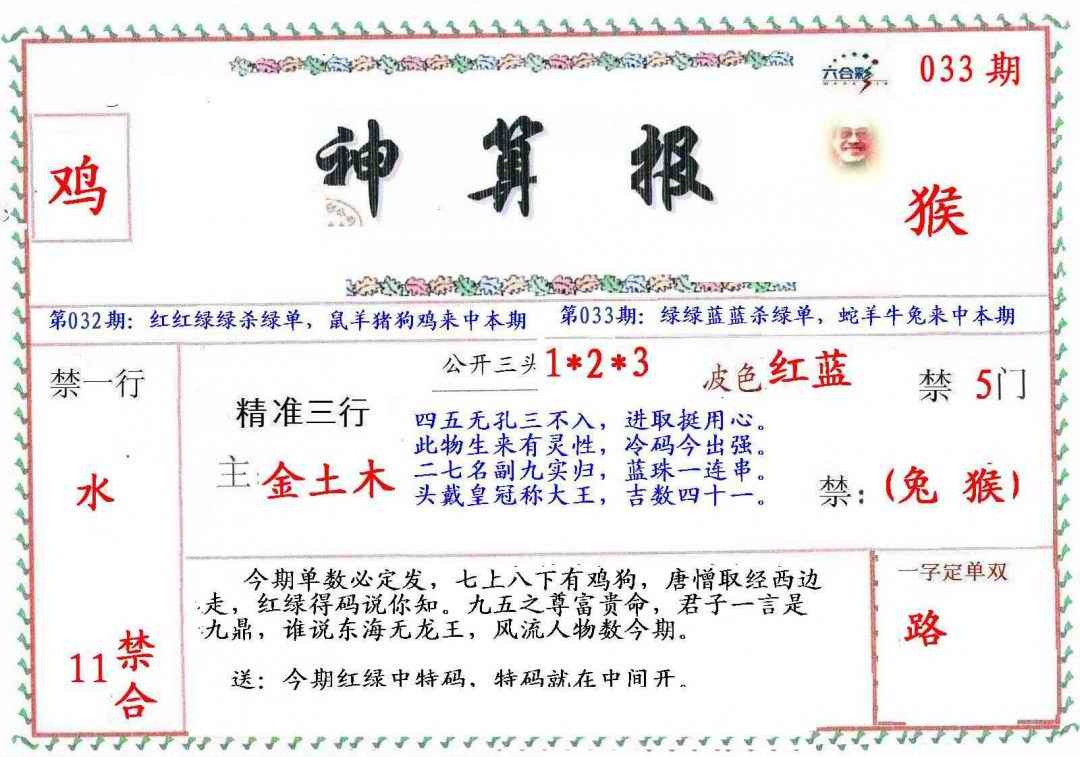 六合彩
033 期
鸡
神算报
猴
第032期：红红绿绿杀绿单，鼠羊猪狗鸡来中本期
第033期：绿绿蓝蓝杀绿单，蛇羊牛兔来中本期
禁一行
水
11 禁合
公开三头 1*2*3
波色 红蓝
禁 5门
精准三行
主：金土木
四五无孔三不入，进取挺用心。
此物生来有灵性，冷码今出强。
二七名副九实归，蓝珠一连串。
头戴皇冠称大王，吉数四十一。
禁：(兔 猴)
今期单数必定发，七上八下有鸡狗，唐憎取经西边
走，红绿得码说你知。九五之尊富贵命，君子一言是
九鼎，谁说东海无龙王，风流人物数今期。
送：今期红绿中特码，特码就在中间开。
一字定单双
路